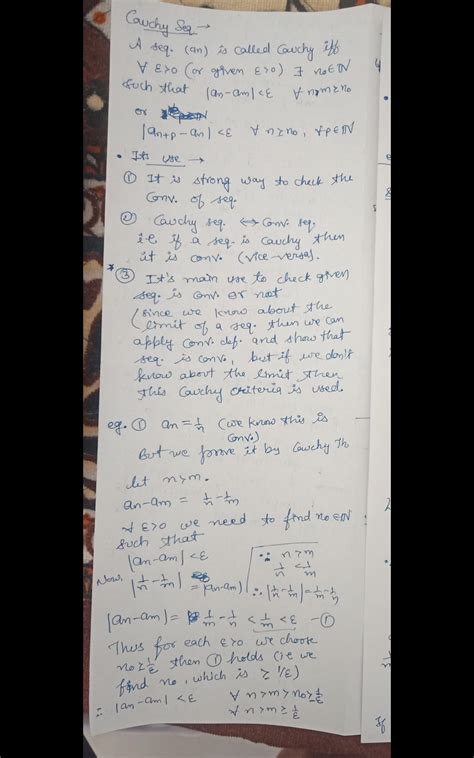 Cauchy Seq →
A seq. (an) is called Cauchy iff
∀ ε>0 (or given ε>0) ∃ n₀∈ℕ
such that |an-am|<ε ∀ n,m≥n₀
or
|an+p - an|<ε ∀ n≥n₀, ∀p∈ℕ
• Its use →
① It is strong way to check the
Conv. of seq.
② Cauchy seq. ↔ Conv. seq.
i.e. if a seq. is Cauchy then
it is conv. (vice-versa).
* ③ It's main use to check given
seq. is conv. or not
(since we know about the
limit of a seq. then we can
apply conv. def. and show that
seq. is conv., but if we don't
know about the limit then
this Cauchy criteria is used.
eg. ① an = 1/n (we know this is
conv.)
But we prove it by Cauchy Th
let n>m.
an-am = 1/n - 1/m
∀ ε>0 we need to find n₀∈ℕ
such that
|an-am|<ε
∵ n>m
1/n < 1/m
∴ |1/n - 1/m| = 1/m - 1/n
Now, |1/n - 1/m| = |an-am|
|an-am| = 1/m - 1/n < 1/m < ε -①
Thus for each ε>0 we choose
n₀≥1/ε then ① holds (i.e we
find n₀, which is ≥ 1/ε)
∴ |an-am|<ε ∀ n>m>n₀≥1/ε
∀ n>m≥1/ε
If